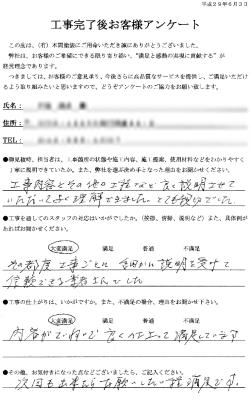 平成29年6月3日
工事完了後お客様アンケート
この度は、(有)本間塗装にご用命いただき誠にありがとうございました。
弊社は、お客様のご希望にできる限り寄り添い、"満足と感動の実現に貢献する"が
経営理念であります。
つきましては、お客様のご意見を承り、今後さらに高品質なサービスを提供し、ご満足いただけ
るよう取り組みたいと思いますので、どうぞアンケートのご協力をお願い致します。
氏名:
住所:
TEL:
●御見積時、担当者は、1.診断所の状態や施工内容、施工提案、使用材料などをわかりやすく
丁寧に説明できていたか。また、質問に的確にお答え出来ていたか等お書き下さい。
工事内容とその他の工程など良く説明させて
いただいてよく理解できました。とても親切でした。
●工事を通してのスタッフの対応はいかがでしたか。(挨拶、清掃、後始など)また、具体例が
あればお書きください。
大変満足 満足 普通 不満足
その都度工事ごとに細かい説明を受けて
信頼できる業者さんでした
●工事の仕上がりは、いかがですか。また、不満足の場合、理由をお聞かせ下さい。
大変満足 満足 普通 不満足
内容がていねいで良く仕上って満足しています
●その他、お気付きになった点などございましたら、ご記入ください。
次回も出来たらお願いしたい程満足です。